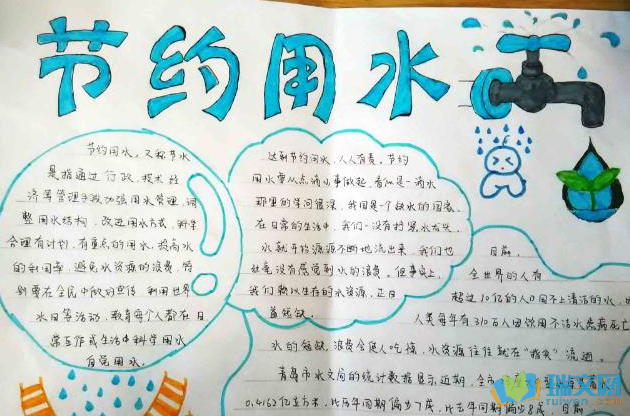 节约用水
节约用水，又称节水
是指通过行政、技术经
济等管理手段加强用水管理，调
整用水结构，改进用水方式，科学
合理有计划，有重点的用水，提高水
的利用率，避免水资源的浪费，特
别要在全民中做的宣传 利用世界
水日等活动，教育每个人都在日
常工作或生活中科学用水
自觉用水。
达到节约用水，人人有责。节约
用水要从点滴小事做起，看似是一滴水
那里的学问很深，我国是个缺水的国家
在日常的生活中，我们一没有拧紧水龙头，
水就开始源源不断地流出来，我们也
丝毫没有感觉到水的浪费。但事实上，
我们赖以生存的水资源，正日
益短缺。
目前，
全世界的人有
超过10亿的人口用不上清洁的水，
人类每年有310万人因饮用不洁水患病死亡
水的短缺、浪费会使人吃惊，水资源往往就在“指尖”流逝
青岛市水文局的统计数据显示，近期，全市
0.4162亿立方米，比历年同期偏少7成，比去年同期偏少8成，目前
瑞文网
www.ruiwen.com